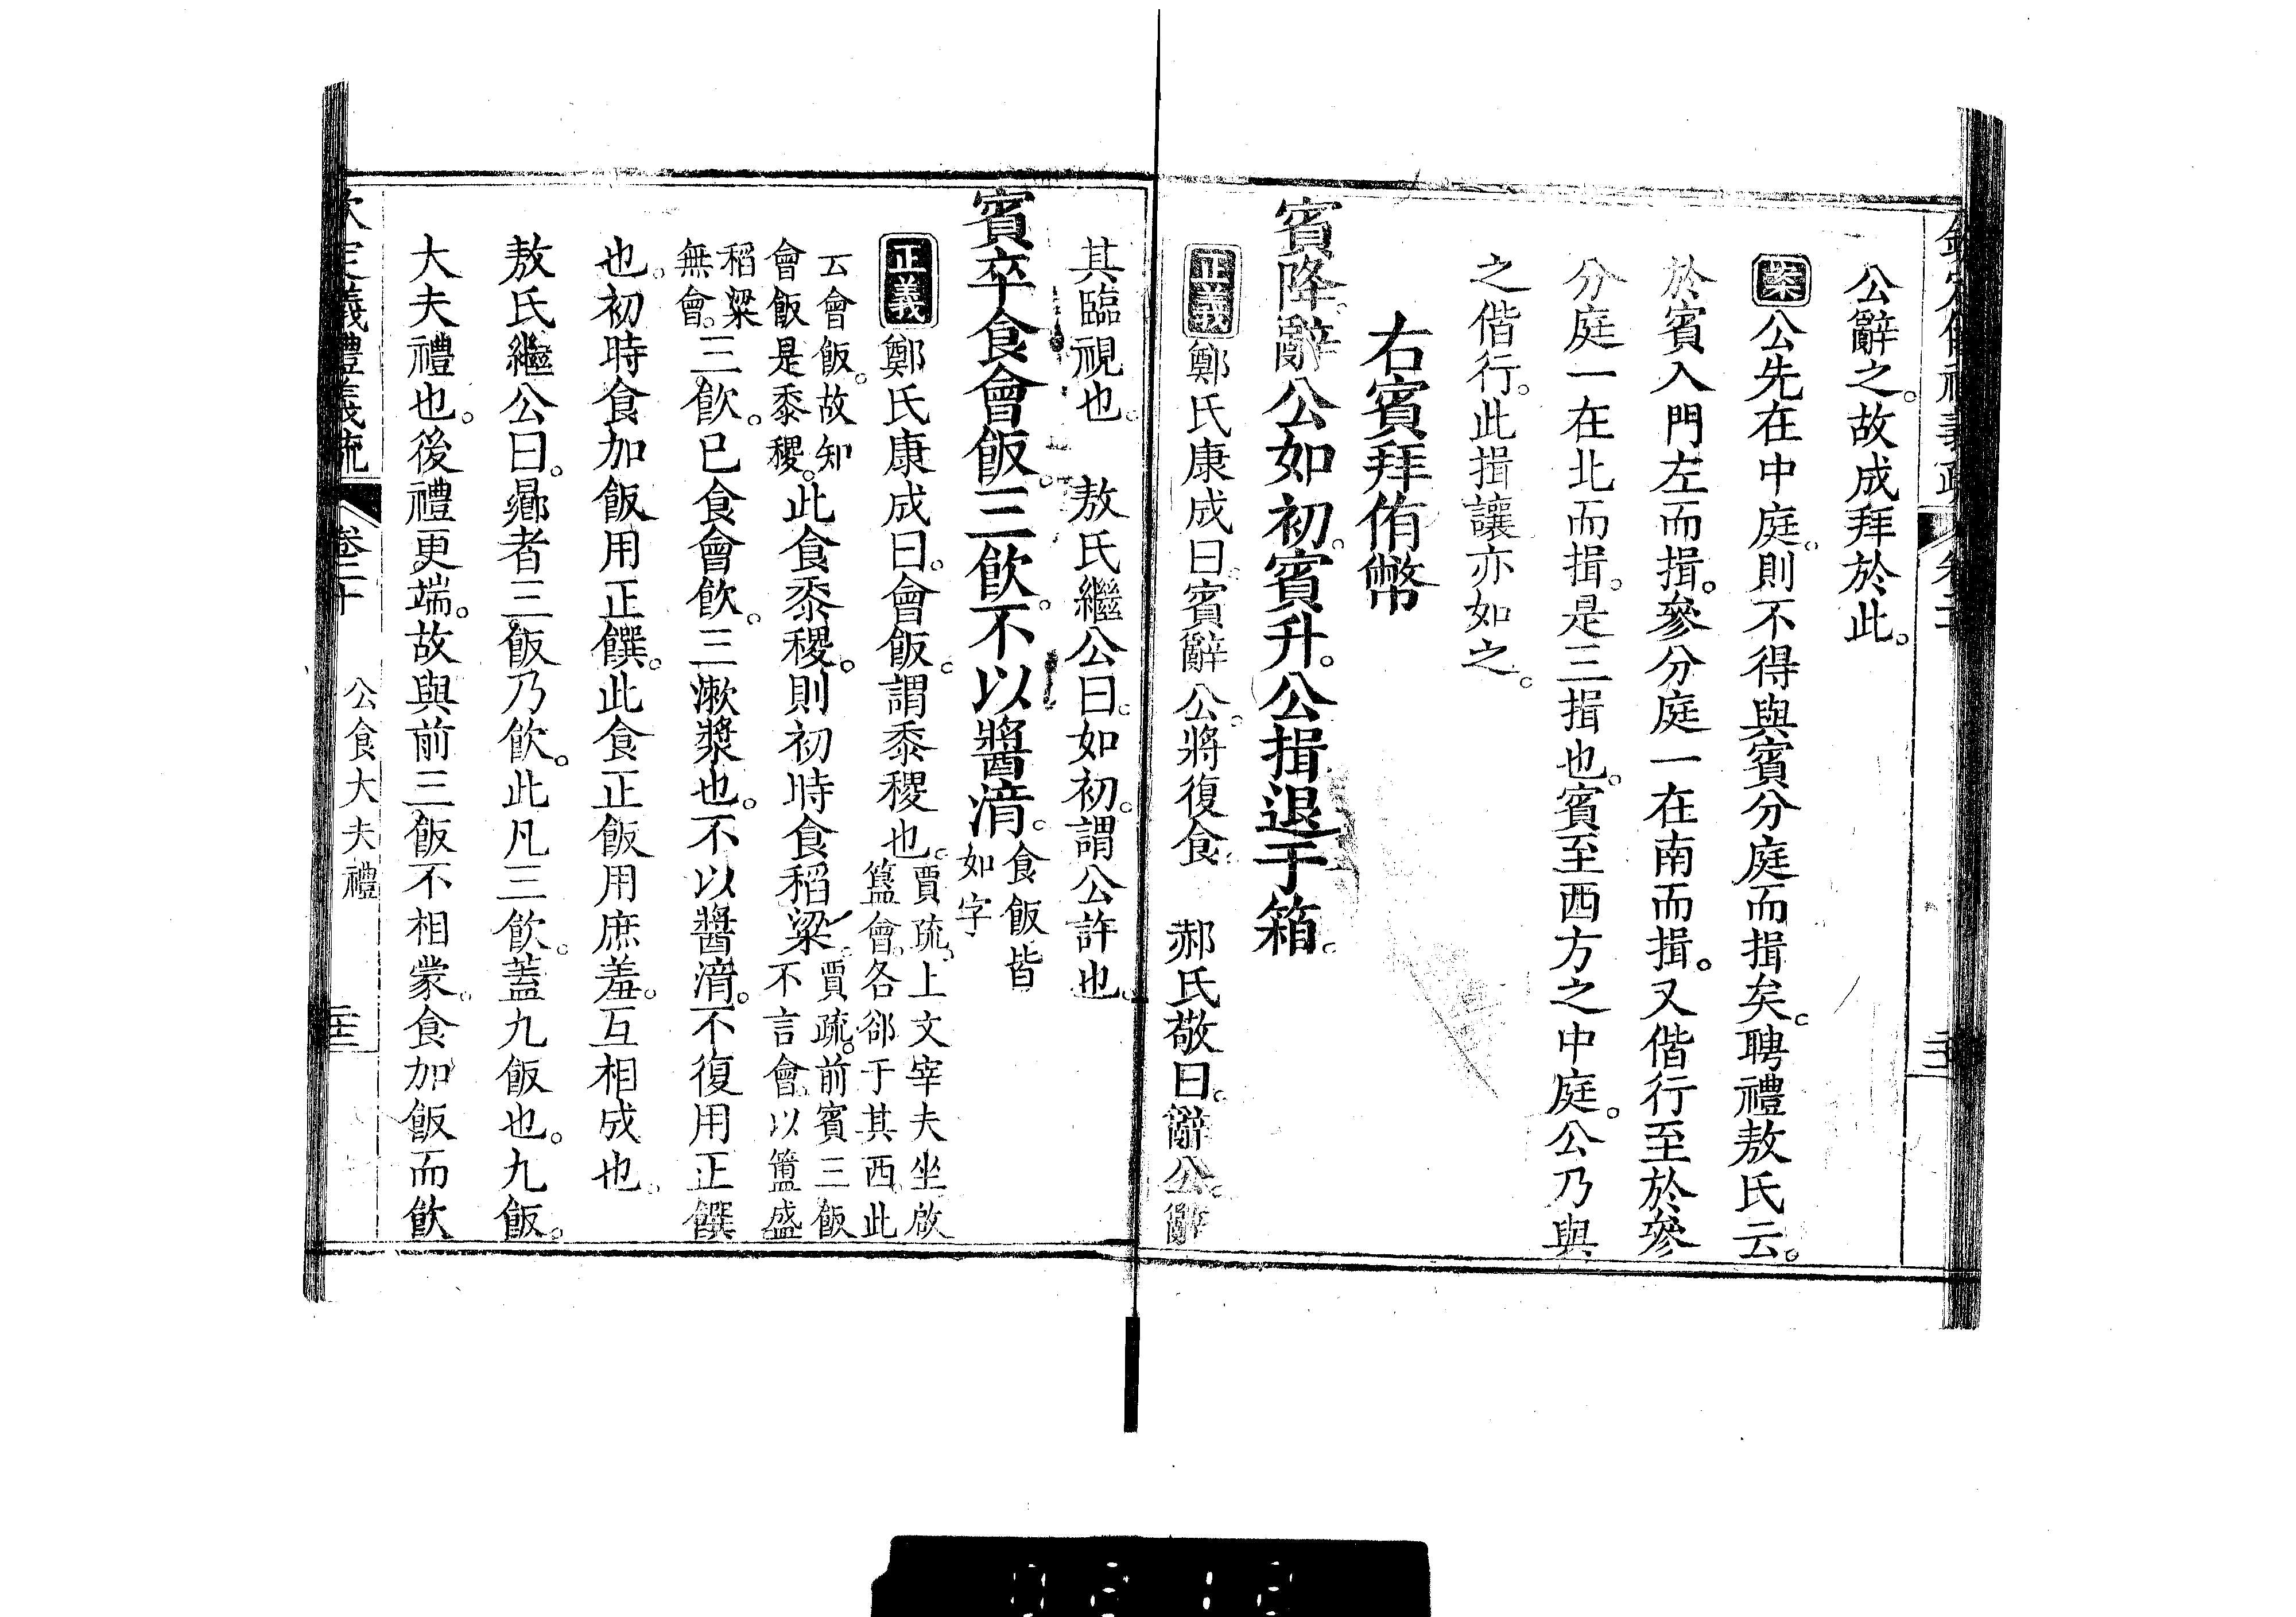 公辭之。故成拜於此。
案公先在中庭。則不得與賓分庭而揖矣。聘禮敖氏云。
於賓入門左而揖。參分庭一在南而揖。又偕行至於參
分庭一在北而揖。是三揖也。賓至西方之中庭。公乃與
之偕行。此揖讓亦如之。
右賓拜侑幣
賓降。辭公如初。賓升。公揖退于箱。
正義鄭氏康成曰。賓辭公。將復食。 郝氏敬曰。辭公。辭
其臨視也。 敖氏繼公曰。如初。謂公許也。
賓卒食會飯。三飲。不以醬湆。食飯皆
如字
正義鄭氏康成曰。會飯。謂黍稷也。賈疏。上文宰夫坐啟
簋會。各郤于其西。此
云會飯。故知
會飯是黍稷。此食黍稷。則初時食稻粱。賈疏。前賓三飯
不言會。以簠盛
稻粱
無會。三飲。已食會飲。三漱漿也。不以醬湆。不復用正饌
也。初時食加飯用正饌。此食正飯用庶羞。互相成也。
敖氏繼公曰。曏者三飯乃飲。此凡三飲。蓋九飯也。九飯。
大夫禮也。後禮更端。故與前三飯不相蒙。食加飯而飲
欽定義禮義疏 卷二十 公食大夫禮